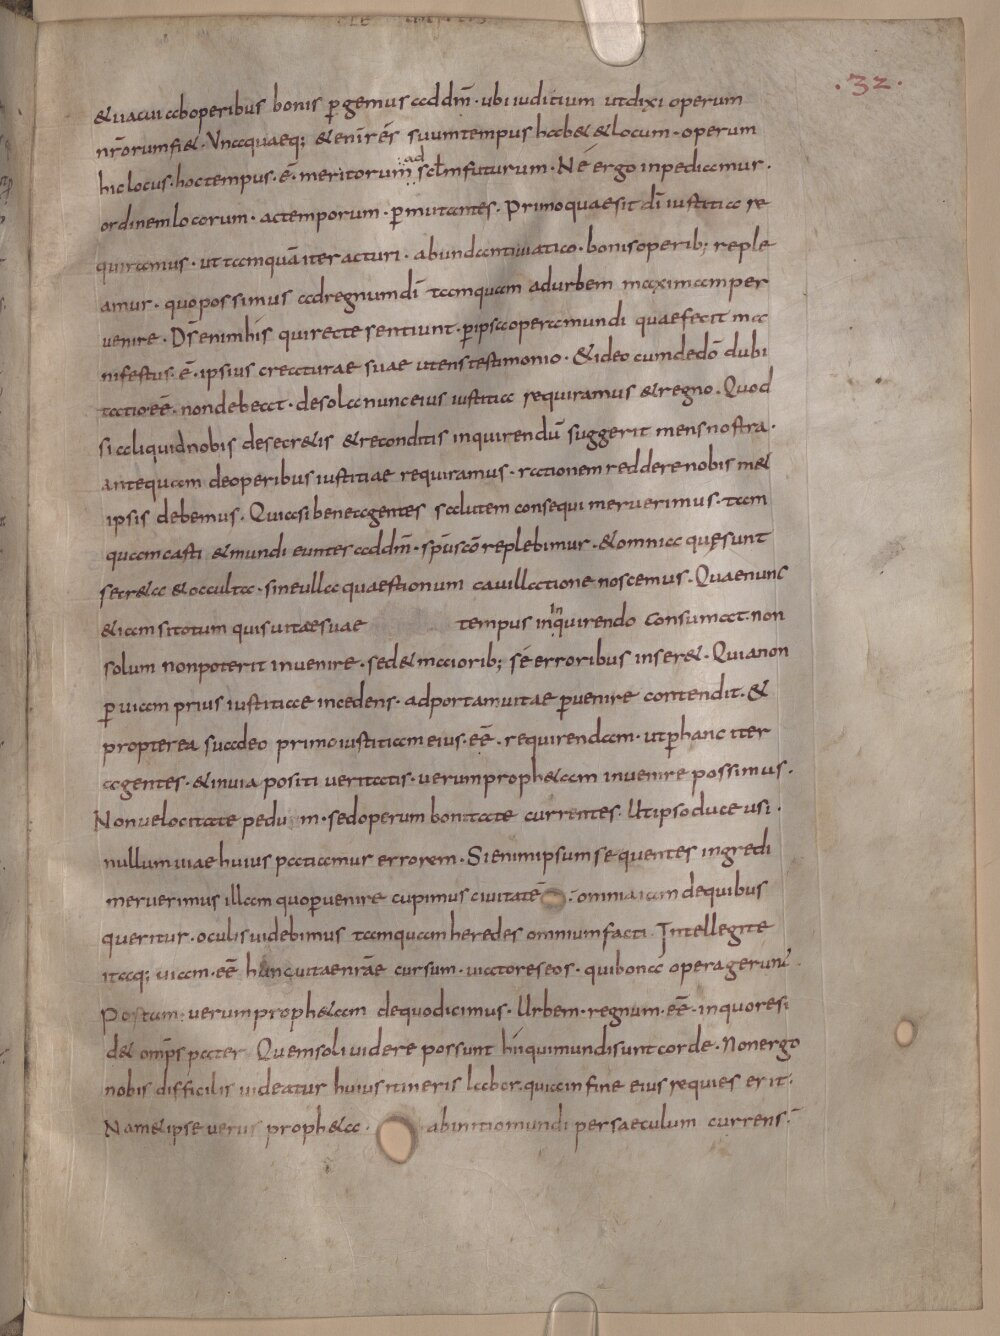 .32.
& uacui ab operibus bonis pgemus ad dm̄. ubi iuditium ut dixi operum
nr̄orum fi&. Vnaquaeq; & enī rēs suum tempus hab& & locum. operum
hic locus. hoc tempus. ē. meritorum ad sc̄lm futurum. Ne ergo inpediamur.
ordinem locorum. ac temporum. pmutantes. Primo quaesit dī iustitia re
quiramus. ut tamquā iter acturi. abundanti uiatico. bonis operib; reple
amur. quo possimus ad regnum dī tamquam ad urbem maximam per
uenire. Ds̄ enim his qui recte sentiunt. p ipsa opera mundi quae fecit ma
nifestus. ē. ipsius creaturae suae utens testimonio. & ideo cum de dō dubi
tatio eē. non debeat. de sola nunc eius iustitia requiramus & regno. Quod
si aliquid nobis de secr&is & reconditis inquirendū suggerit mens nostra.
antequam de operibus iustitiae requiramus. rationem reddere nobis m&
ipsis debemus. Quia si bene agentes salutem consequi meruerimus. tam
quam casti & mundi euntes ad dm̄. sp̄u scō replebimur. & omnia quę sunt
secr&a & occulta. sine ulla quaestionum cauillatione noscemus. Quae nunc
&iam si totum quis uitae suae tempus in inquirendo consumat. non
solum non poterit inuenire. sed & maiorib; se erroribus inser&. Quia non
p uiam prius iustitiae incedens. ad portam uitae puenire contendit. &
propterea suadeo primo iustitiam eius. eē. requirendam. ut p hanc iter
agentes. & in uia positi ueritatis. uerum proph&am inuenire possimus.
Non uelocitate pedum. sed operum bonitate currentes. Ut ipso duce usi.
nullum uiae huius patiamur errorem. Si enim ipsum sequentes ingredi
meruerimus illam quo puenire cupimus ciuitatē. omnia iam de quibus
queritur. oculis uidebimus tamquam heredes omnium facti. Intellegite
itaq; uiam. eē hunc uitae nr̄ae cursum. uiatores eos. qui bona opera gerunt.
Portam. uerum proph&am de quo dicimus. Urbem. regnum. eē. in quo resi
d& omp̄s pater. Quem soli uidere possunt hii qui mundi sunt corde. Non ergo
nobis difficilis uideatur huius itineris labor. quia in fine eius requies erit.
Nam & ipse uerus proph&a. ab initio mundi per saeculum currens.